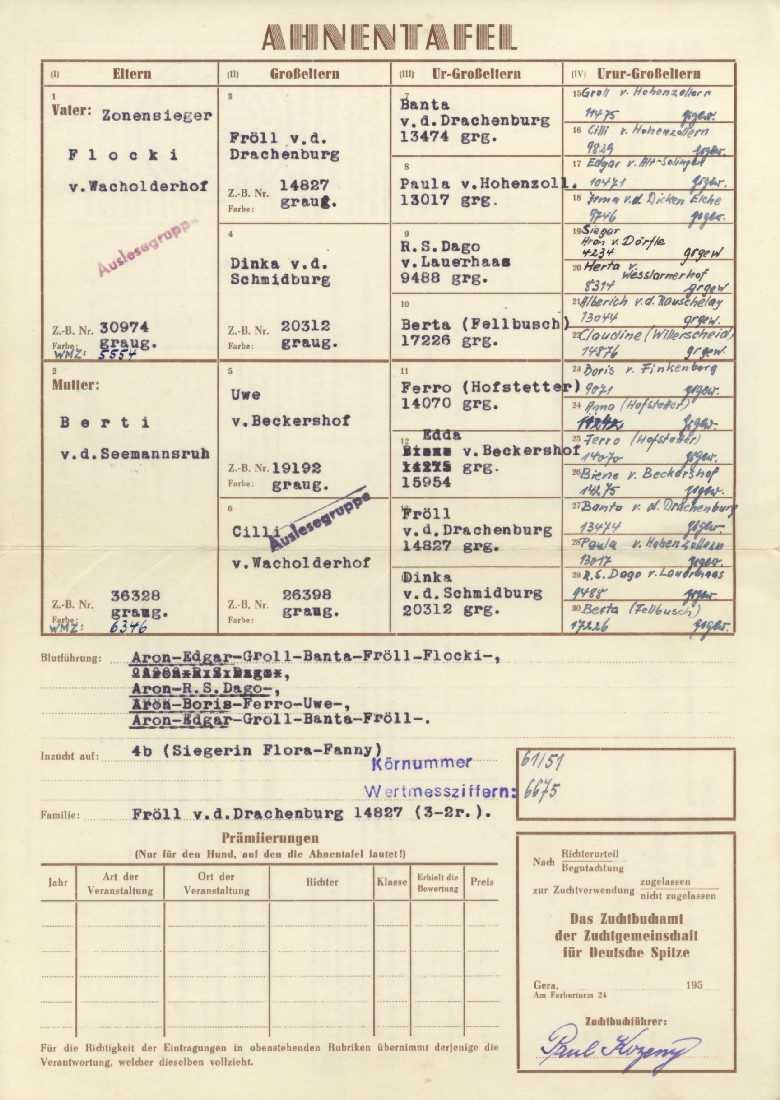 AHNENTAFEL
(I) Eltern
(II) Großeltern
(III) Ur-Großeltern
(IV) Urur-Großeltern
1
Vater: Zonensieger
Flocki
v.Wacholderhof
Auslesegruppe
Z.-B. Nr. 30974
Farbe: graug.
WMZ: 5554
2
Mutter:
Berti
v.d.Seemannsruh
Z.-B. Nr. 36328
Farbe: graug.
WMZ: 6346
3
Fröll v.d.
Drachenburg
Z.-B. Nr. 14827
Farbe: graug.
4
Dinka v.d.
Schmidburg
Z.-B. Nr. 20312
Farbe: graug.
5
Uwe
v.Beckershof
Z.-B. Nr. 19192
Farbe: graug.
6
Cilli
Auslesegruppe
v.Wacholderhof
Z.-B. Nr. 26398
Farbe: graug.
7
Banta
v.d.Drachenburg
13474 grg.
8
Paula v.Hohenzoll.
13017 grg.
9
R.S.Dago
v.Lauerhaas
9488 grg.
10
Berta (Fellbusch)
17226 grg.
11
Ferro (Hofstetter)
14070 grg.
12
Edda
v.Beckershof
14275 grg.
15954
Fröll
v.d.Drachenburg
14827 grg.
Dinka
v.d.Schmidburg
20312 grg.
15 Groll v. Hohenzollern
11475 grgew.
16 Cilli v. Hohenzollern
9829 grgew.
17 Edgar v. Alt-Solingen
10471 grgew.
18 Irma v.d. Dicken Eiche
9746 grgew.
19 Sieger
Aron v. Dörfle
4234 grgew
20 Herta v.
Wesslarnerhof
8314 grgew
21 Alberich v.d. Rauschelay
13044 grgew.
22 Claudine (Willerscheid)
14876 grgew.
23 Boris v. Finkenberg
9071 grgew.
24 Anno (Hofstetter)
grgew.
25 Ferro (Hofstetter)
14070 grgew.
26 Biene v. Beckershof
14275 grgew.
27 Banta v. d. Drachenburg
13474 grgew.
28 Paula v. Hohenzollern
13017 grgew.
29 R.S. Dago v. Lauerhaas
9488 grgew.
30 Berta (Fellbusch)
17226 grgew.
Blutführung: Aron-Edgar-Groll-Banta-Fröll-Flocki-,
Aron-R.S.Dago-,
Aron-Boris-Ferro-Uwe-,
Aron-Edgar-Groll-Banta-Fröll-.
Inzucht auf: 4b (Siegerin Flora-Fanny)
Körnummer 61/51
Wertmessziffern: 6675
Familie: Fröll v.d.Drachenburg 14827 (3-2r.).
Prämiierungen
(Nur für den Hund, auf den die Ahnentafel lautet!)
Jahr
Art der Veranstaltung
Ort der Veranstaltung
Richter
Klasse
Erhielt die Bewertung
Preis
Für die Richtigkeit der Eintragungen in obenstehenden Rubriken übernimmt derjenige die
Verantwortung, welcher dieselben vollzieht.
Nach Richterurteil
Begutachtung
zur Zuchtverwendung zugelassen
nicht zugelassen
Das Zuchtbuchamt
der Zuchtgemeinschaft
für Deutsche Spitze
Gera, 195
Am Ferberturm 24
Zuchtbuchführer:
Paul Kozeny